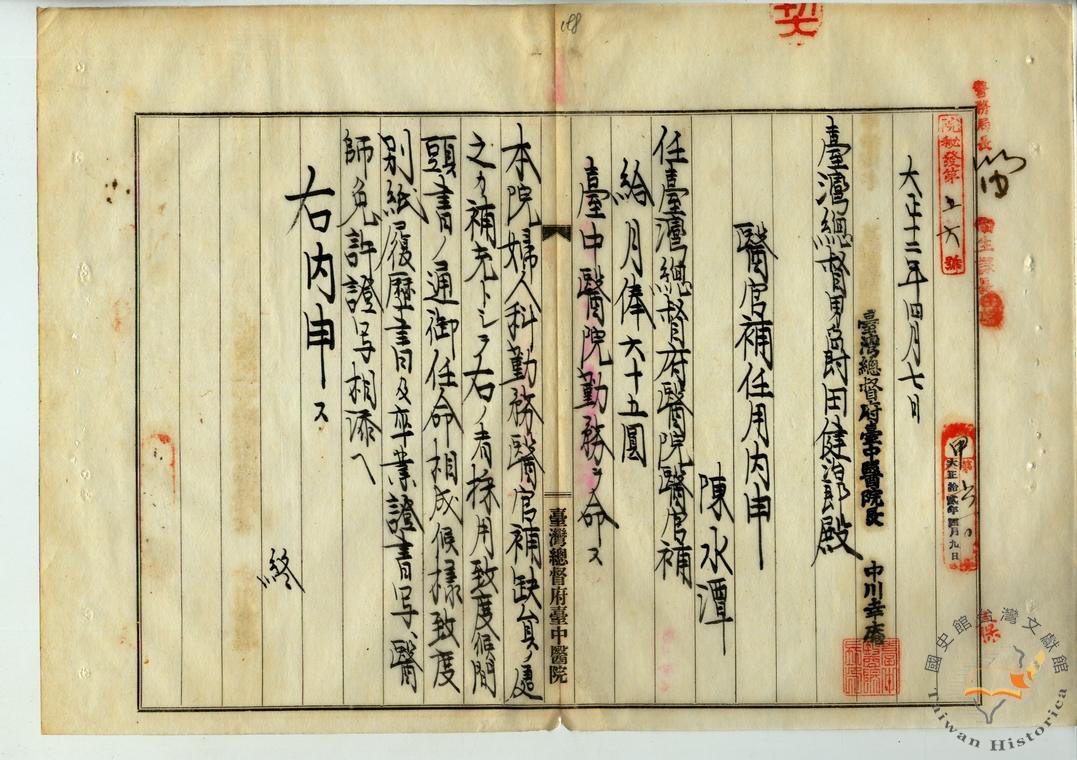 警務局長
院秘發第五六號
大正十二年四月七日
臺灣總督府臺中醫院長 中川幸庵
臺灣總督男爵田健治郎殿
醫官補任用内申
陳水潭
任臺灣總督府醫院醫官補
給月俸六十五圓
臺中醫院勤務ヲ命ス
臺灣總督府臺中醫院
本院婦人科勤務醫官補缺員ノ處
之カ補充トシテ右ノ者採用致度候間
頭書ノ通御任命相成候樣致度
別紙履歴書及卒業證書写、醫
師免許證写相添ヘ
右内申ス
終
大正拾貳年四月九日
國史館臺灣文獻館
Taiwan Historica